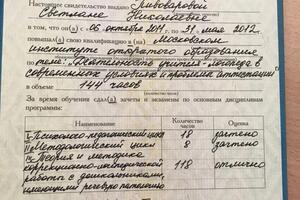 Настоящее свидетельство выдано Пивоваровой
Светлане Николаевне
в том, что он(а) с 06 октября 2011 г. по 31 мая 2012
повышал(а) свою квалификацию в (на) Московском
институте открытого образования
по теме: "Деятельность учителя-логопеда в
современных условиях и проблемы аттестации
в объеме 144 часов
За время обучения сдал(а) зачеты и экзамены по основным дисциплинам
программы:
Наименование Количество часов Оценка
I. Психолого-педагогический цикл 18 зачтено
II. Методологический цикл 8 зачтено
Теория и методика
коррекционно-логопедической 118 отлично
работы с дошкольниками,
имеющими речевую патологию